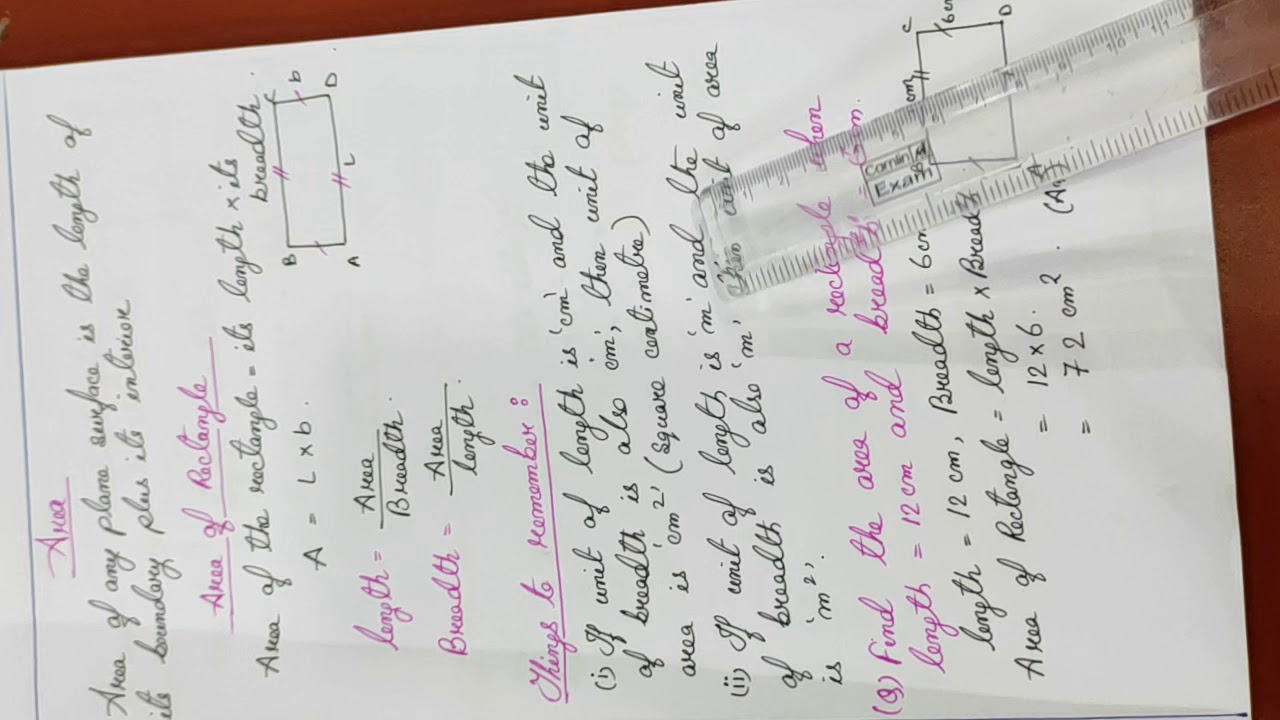 Area
Area of any plane surface is the length of
its boundary plus its interior
Area of Rectangle
Area of the rectangle = its length x its
breadth.
A = L x b
B C b
A L D
length = Area
Breadth.
Breadth = Area
length.
Things to remember:
(i) If unit of length is 'cm' and the unit
of breadth is also 'cm', then unit of
area is 'cm²' (square centimetre)
(ii) If unit of length is 'm' and the unit
of breadth is also 'm', then unit of area
is 'm²'.
(Q) Find the area of a rectangle when
length = 12 cm and breadth = 6cm.
length = 12 cm, Breadth = 6cm
Area of Rectangle = length x Breadth
= 12 x 6.
= 72 cm².
C 6cm D
cm
Camlin
Exam